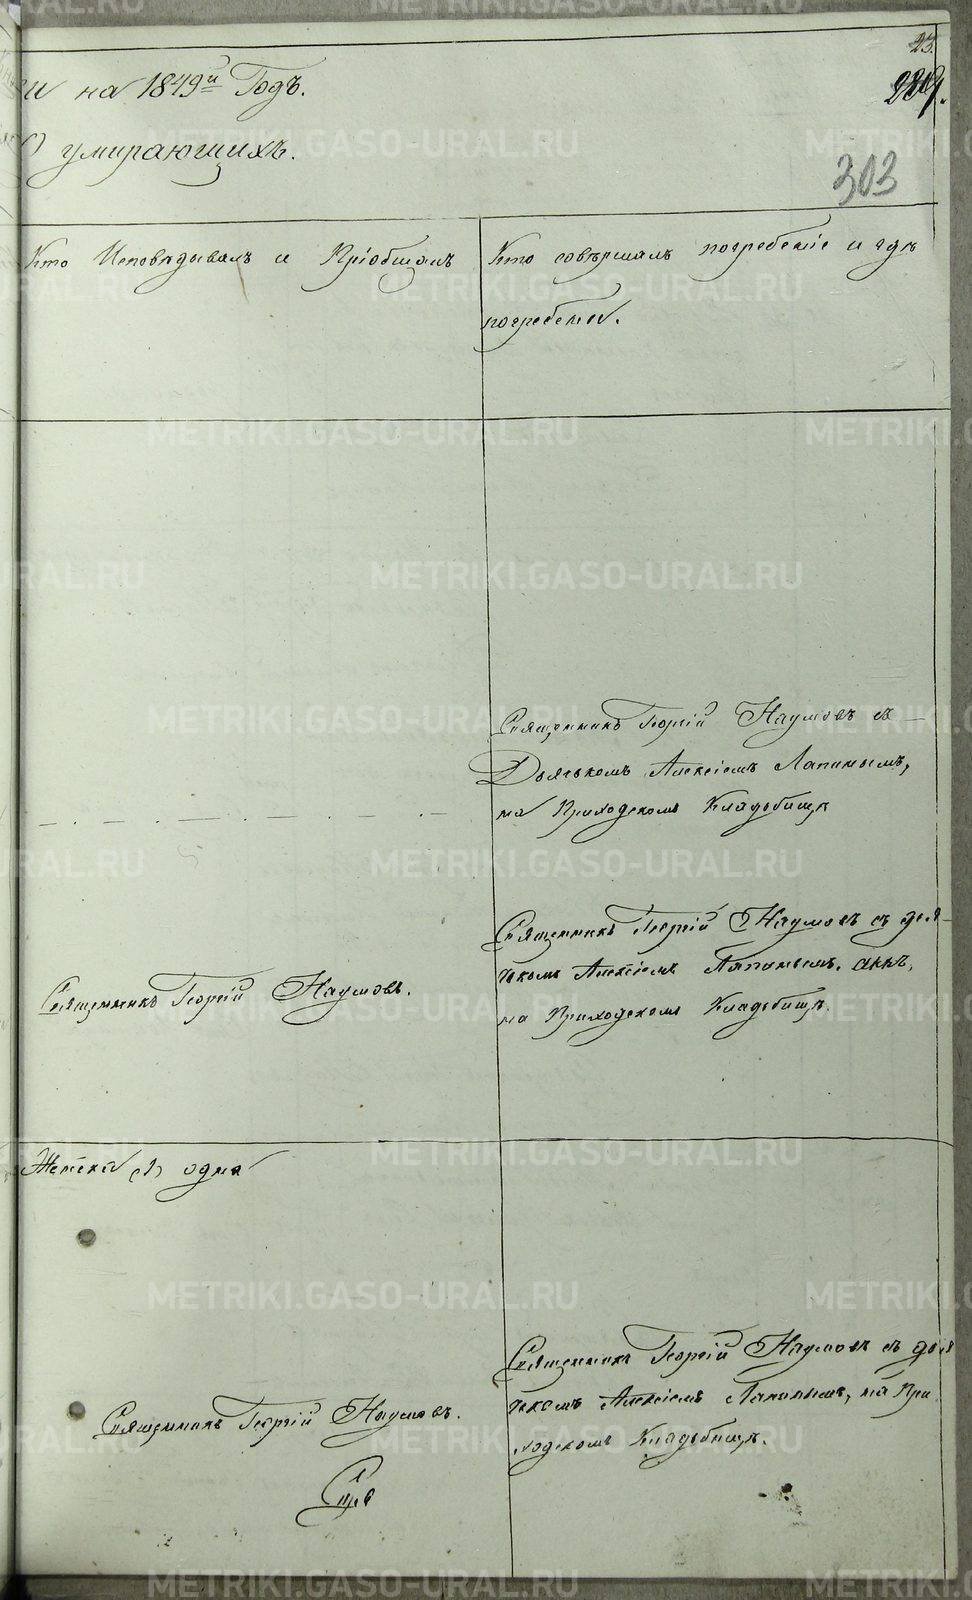 23.
и на 1849й Годъ.
умирающихъ.
303
Кто Исповѣдывалъ и Пріобщалъ
Кто совѣршалъ погребеніе и гдѣ
погребены.
Священникъ Георгій Наумовъ съ
Дьячкомъ Алексіемъ Лапинымъ,
на Приходскомъ Кладбищѣ
Священникъ Георгій Наумовъ.
Священникъ Георгій Наумовъ съ дья
чкомъ Алексіемъ Лапинымъ,
на Приходскомъ Кладбищѣ.
Женска (1) одна
Священникъ Георгій Наумовъ.
Священникъ Георгій Наумовъ съ дья
чкомъ Алексіемъ Лапинымъ, на При
ходскомъ Кладбищѣ.
METRIKI.GASO-URAL.RU